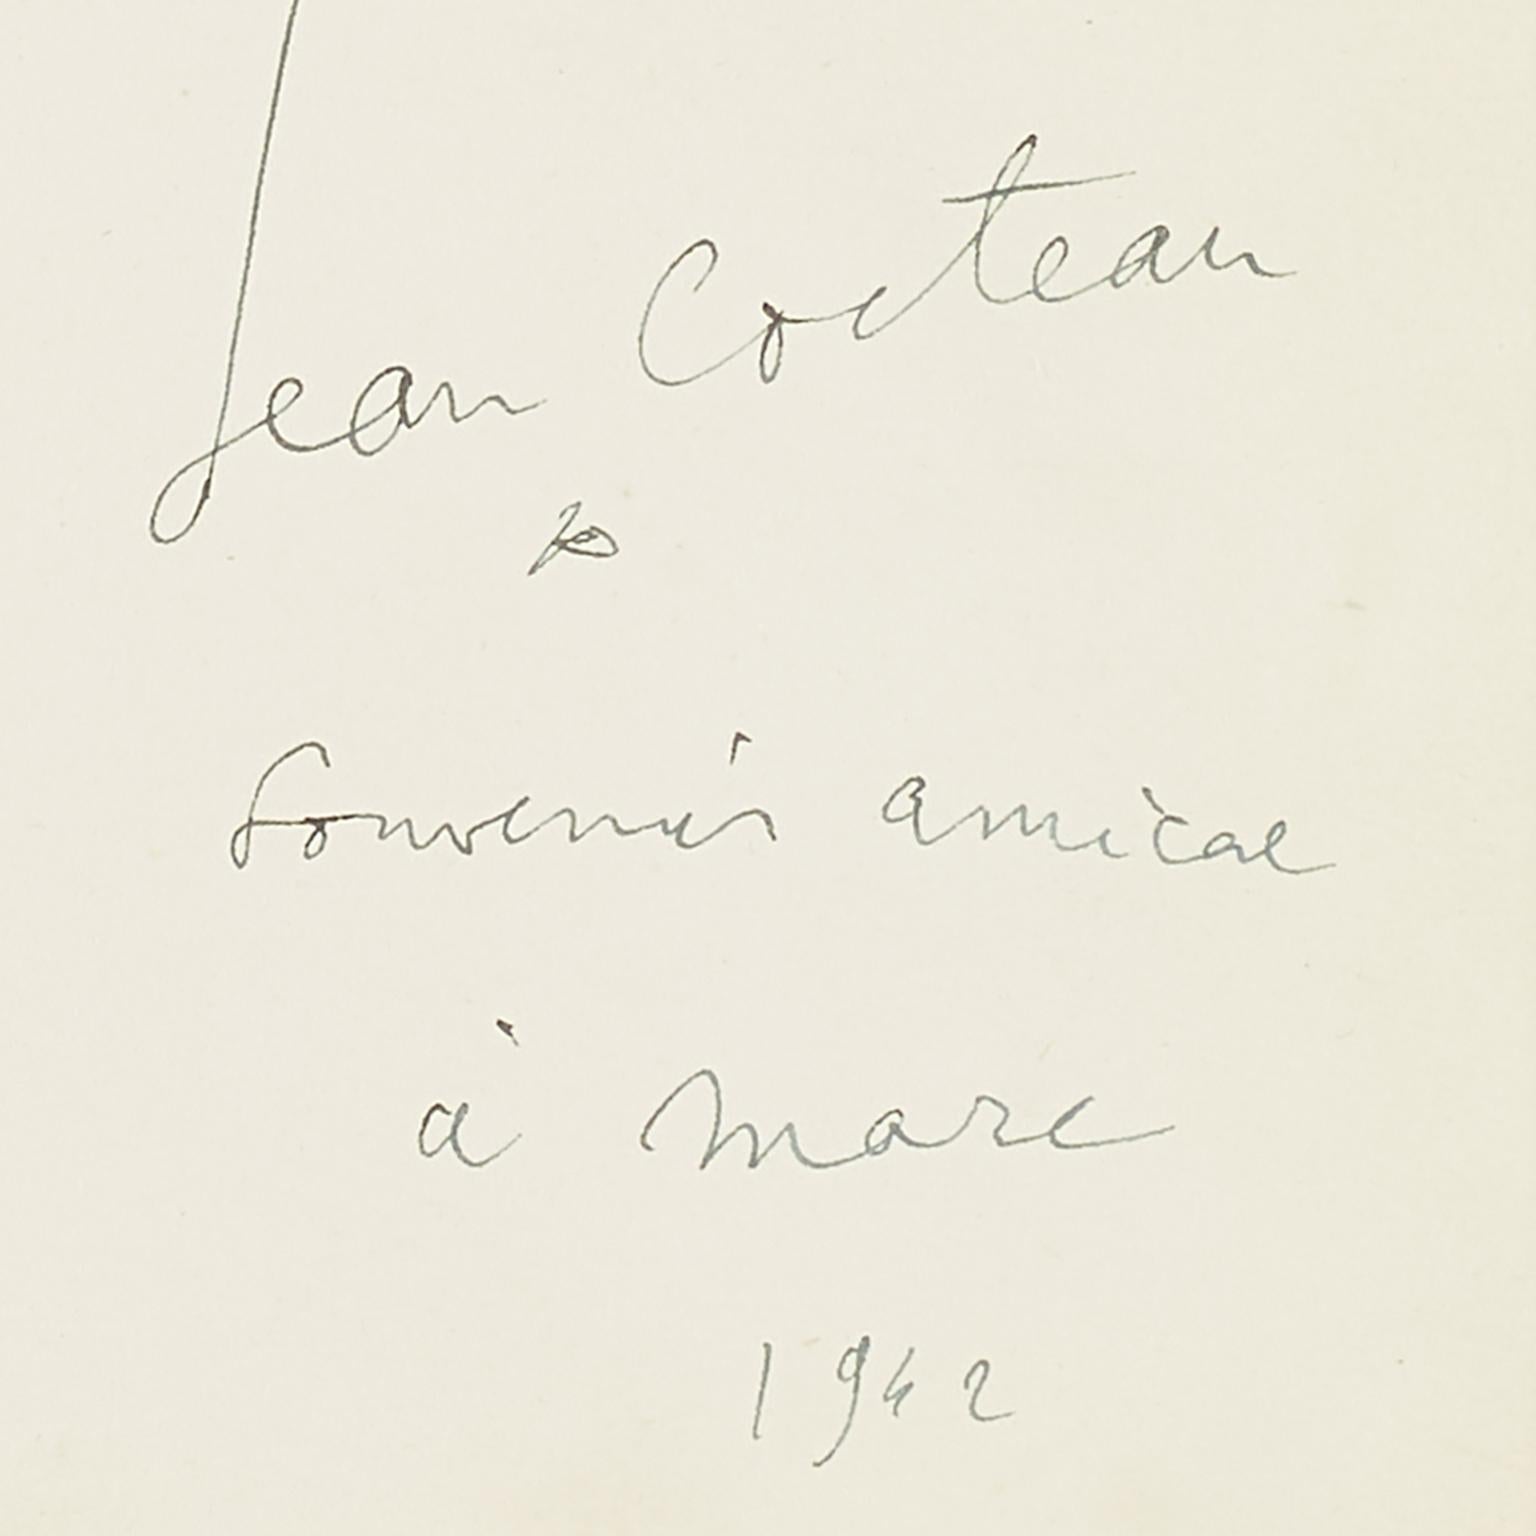 Jean Cocteau
Souvenir amical
à Marc
1942